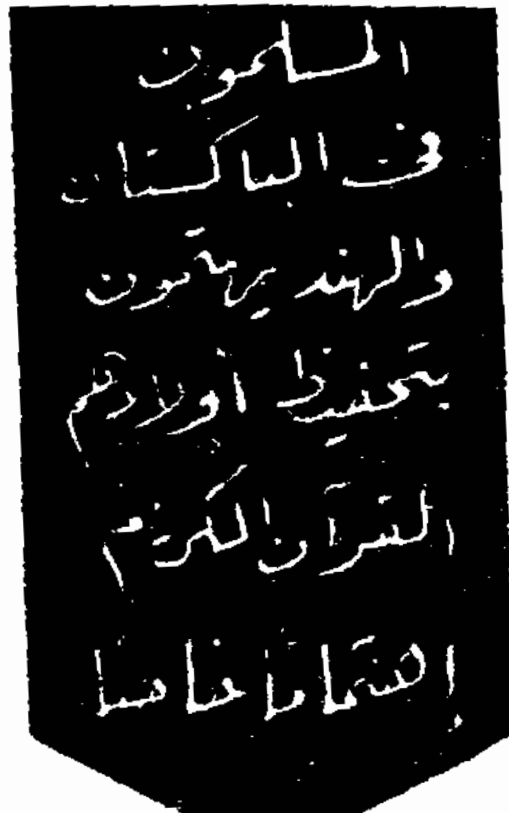 المسلمون
فى الباكستان
والهند يهتمون
بتحفيظ أولادهم
القرآن الكريم
إهتماما خاصا